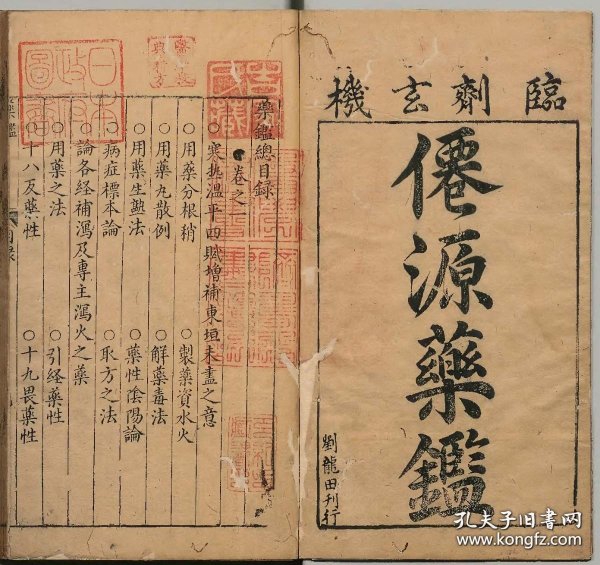 臨劑玄機
僊源藥鑑
劉龍田刊行
藥鑑總目錄
卷之一
○寒熱溫平四賦增補東垣未盡之意
○用藥分根稍 ○製藥資水火
○用藥丸散例 ○解藥毒法
○用藥生𤍠法 ○藥性陰陽論
○病症標本論 ○取方之法
○論各经補瀉及專主瀉火之藥
○用藥之法 ○引经藥性
○十八反藥性 ○十九畏藥性
藥鑑
目录
孔夫子旧書网
www.kongfz.com